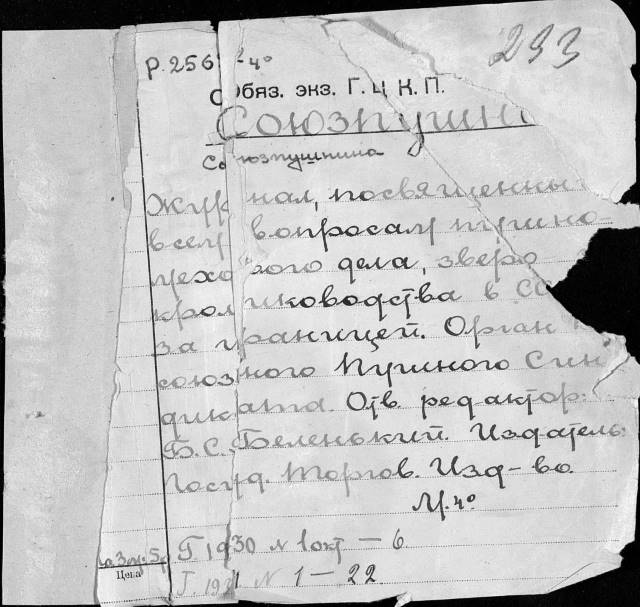 293
Р.256 -4º
Обяз. экз. Г. Ц К. П.
Союзпушни
Союзпушнина
Журнал, посвященны
всем вопросам пушно-
мехового дела, зверо
кролиководства в СС
за границей. Орган
союзного Пушного Син
диката. Отв. редактор:
Б. С. Беленький. Издатель:
Госуд. Торгов. Изд-во.
М. 4º
Г 1930 № 1 окт — 6
Цена
Г. 1931 N 1 — 22.